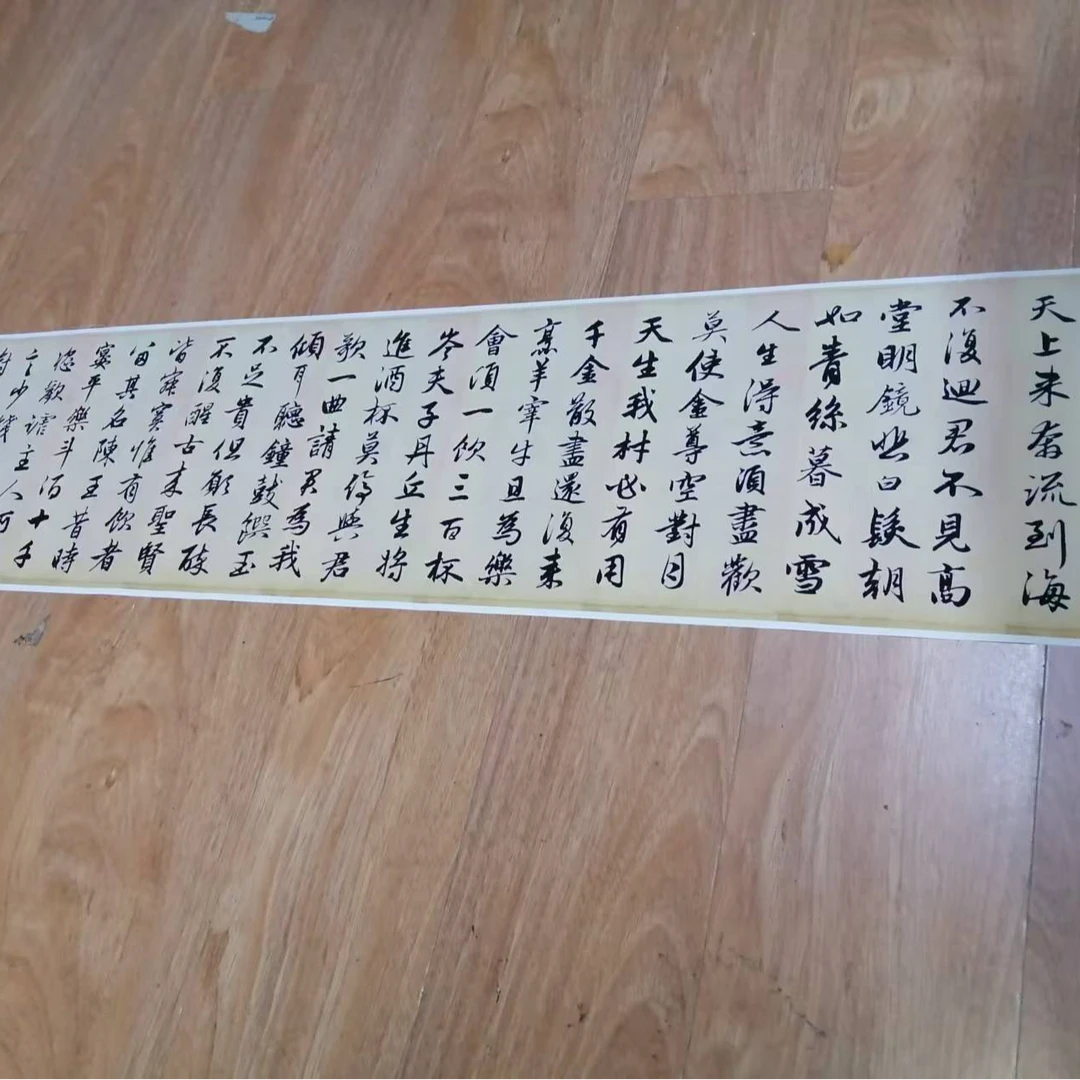 天上来奔流到海
不復迴君不見高
堂明鏡悲白髮朝
如青絲暮成雪
人生得意須盡歡
莫使金尊空對月
天生我材必有用
千金散盡還復来
烹羊宰牛且為樂
會須一飲三百杯
岑夫子丹丘生將
進酒杯莫停與君
歌一曲請君為我
傾耳聽鐘鼓饌玉
不足貴但願長醉
不復醒古来聖賢
皆寂寞惟有飲者
留其名陳王昔時
宴平樂斗酒十千
恣歡謔主人何
言少錢